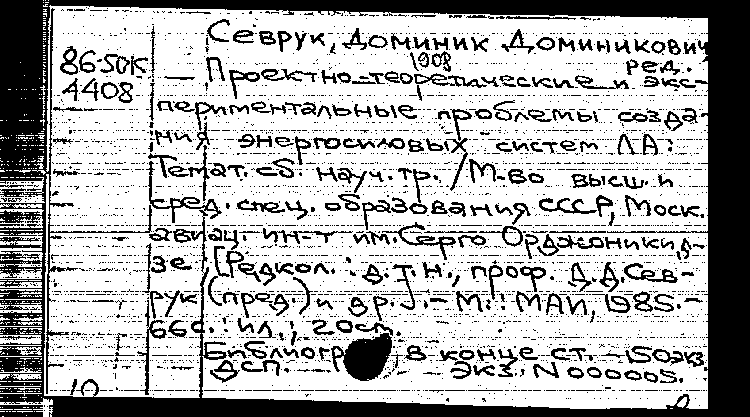 Севрук, Доминик Доминикович
1908 ред.
86-5ОК — Проектно-теоретические и экс-
4408
периментальные проблемы созда-
ния энергосиловых систем ЛА:
Темат. сб. науч. тр. / М-во высш. и
сред. спец. образования СССР, Моск.
авиац. ин-т им. Серго Орджоникид-
зе; [Редкол.: д.т.н., проф. Д.Д. Сев-
рук (пред.) и др.]. - М.: МАИ, 1985. -
66с.: ил.; 20см.
Библиогр в конце ст. - 150экз.
ДСП. Экз. N 000005.
10